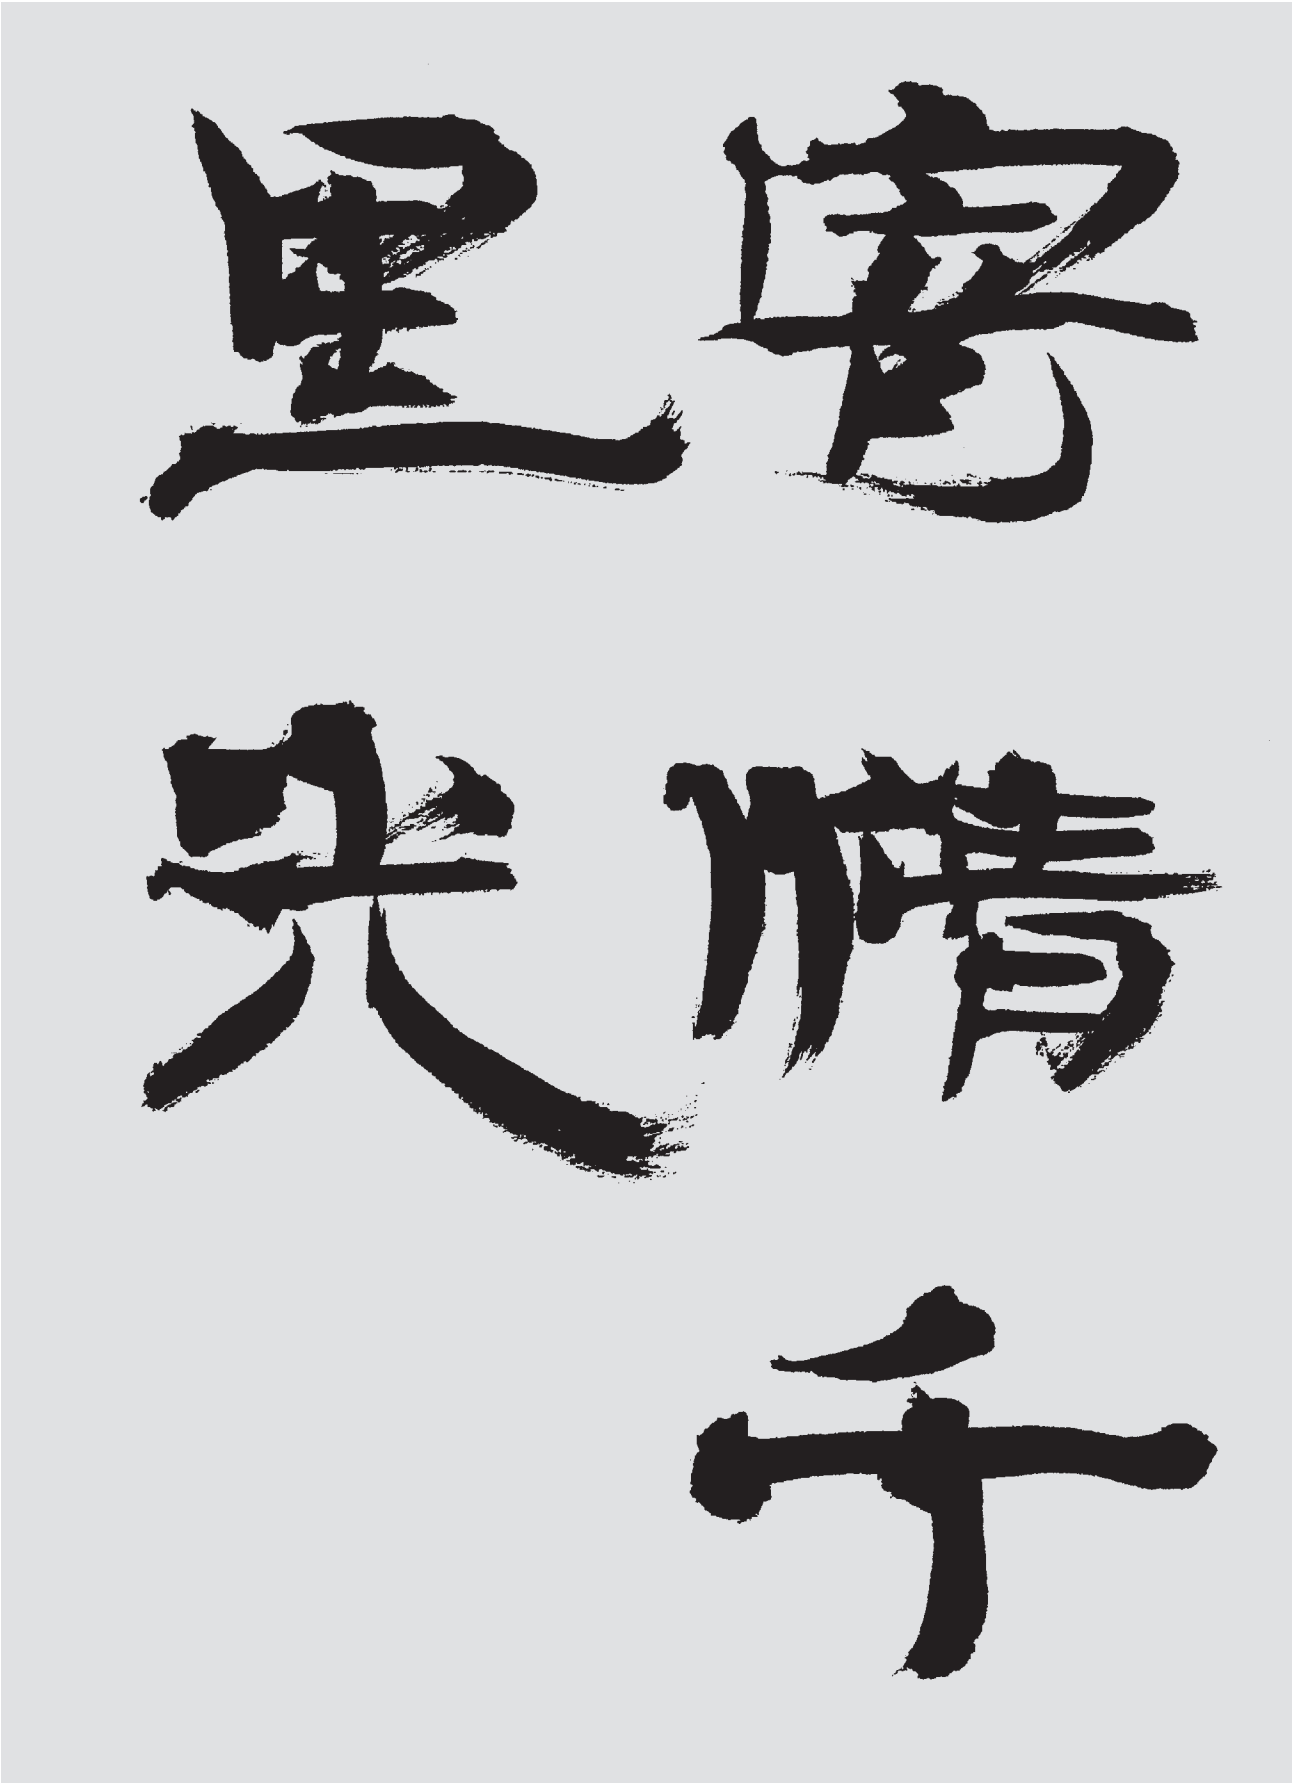 寄情千
里光